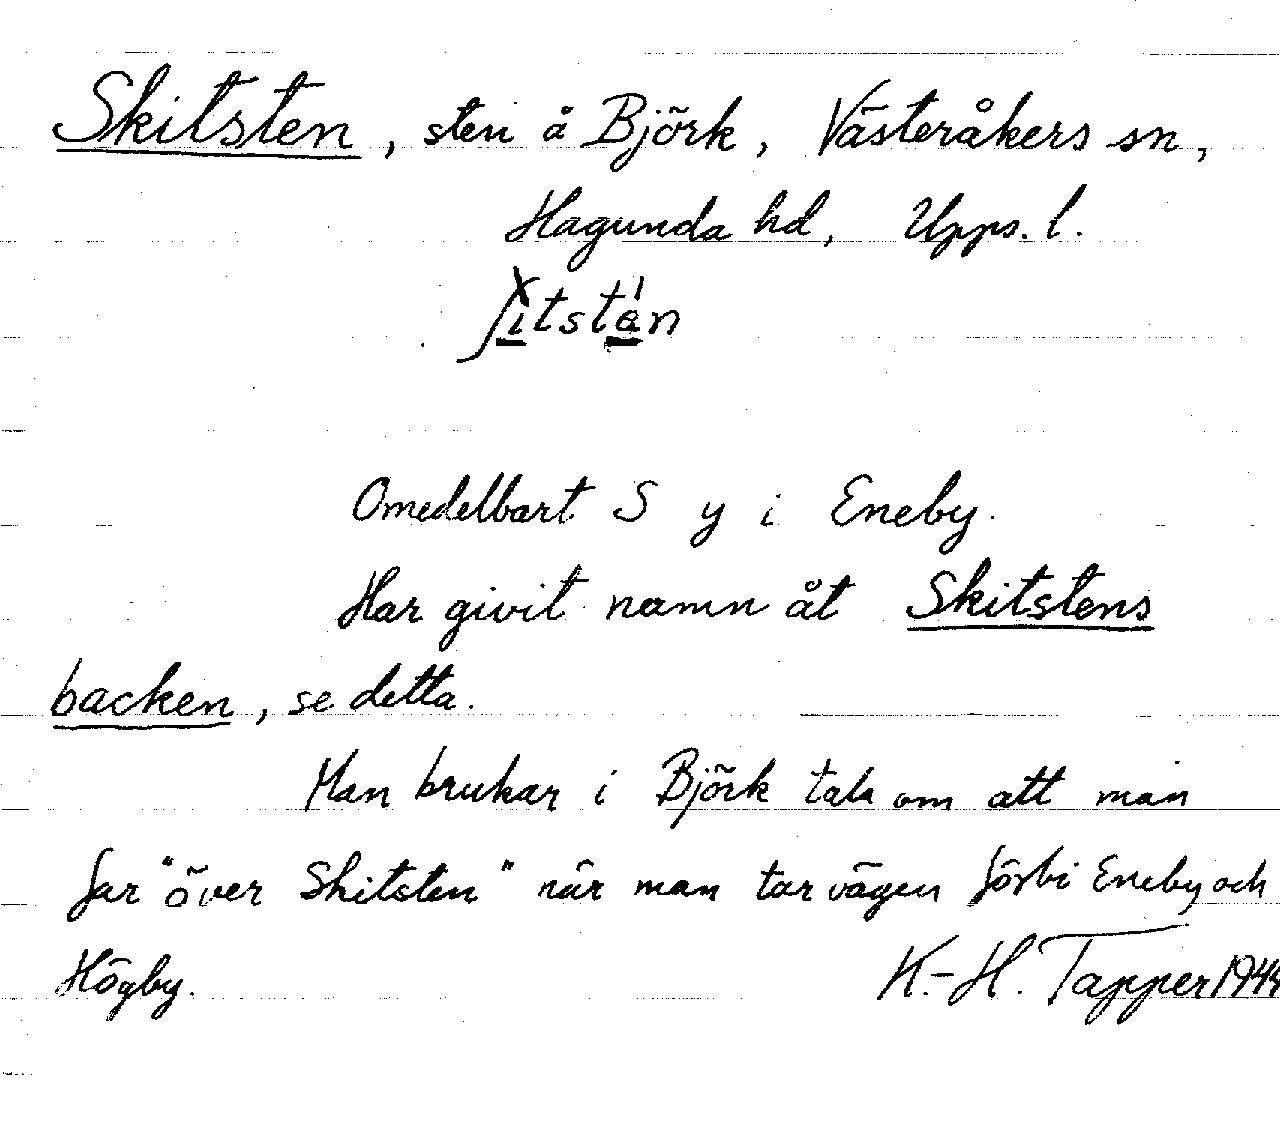 Skitsten, sten å Björk, Västeråkers sn,
Hagunda hd, Upps. l.
ʃitstan
Omedelbart S y i Eneby.
Har givit namn åt Skitstens
backen, se detta.
Man brukar i Björk tala om att man
far "över Skitsten" när man tar vägen förbi Eneby och
Högby. K.-H. Tapper 1944